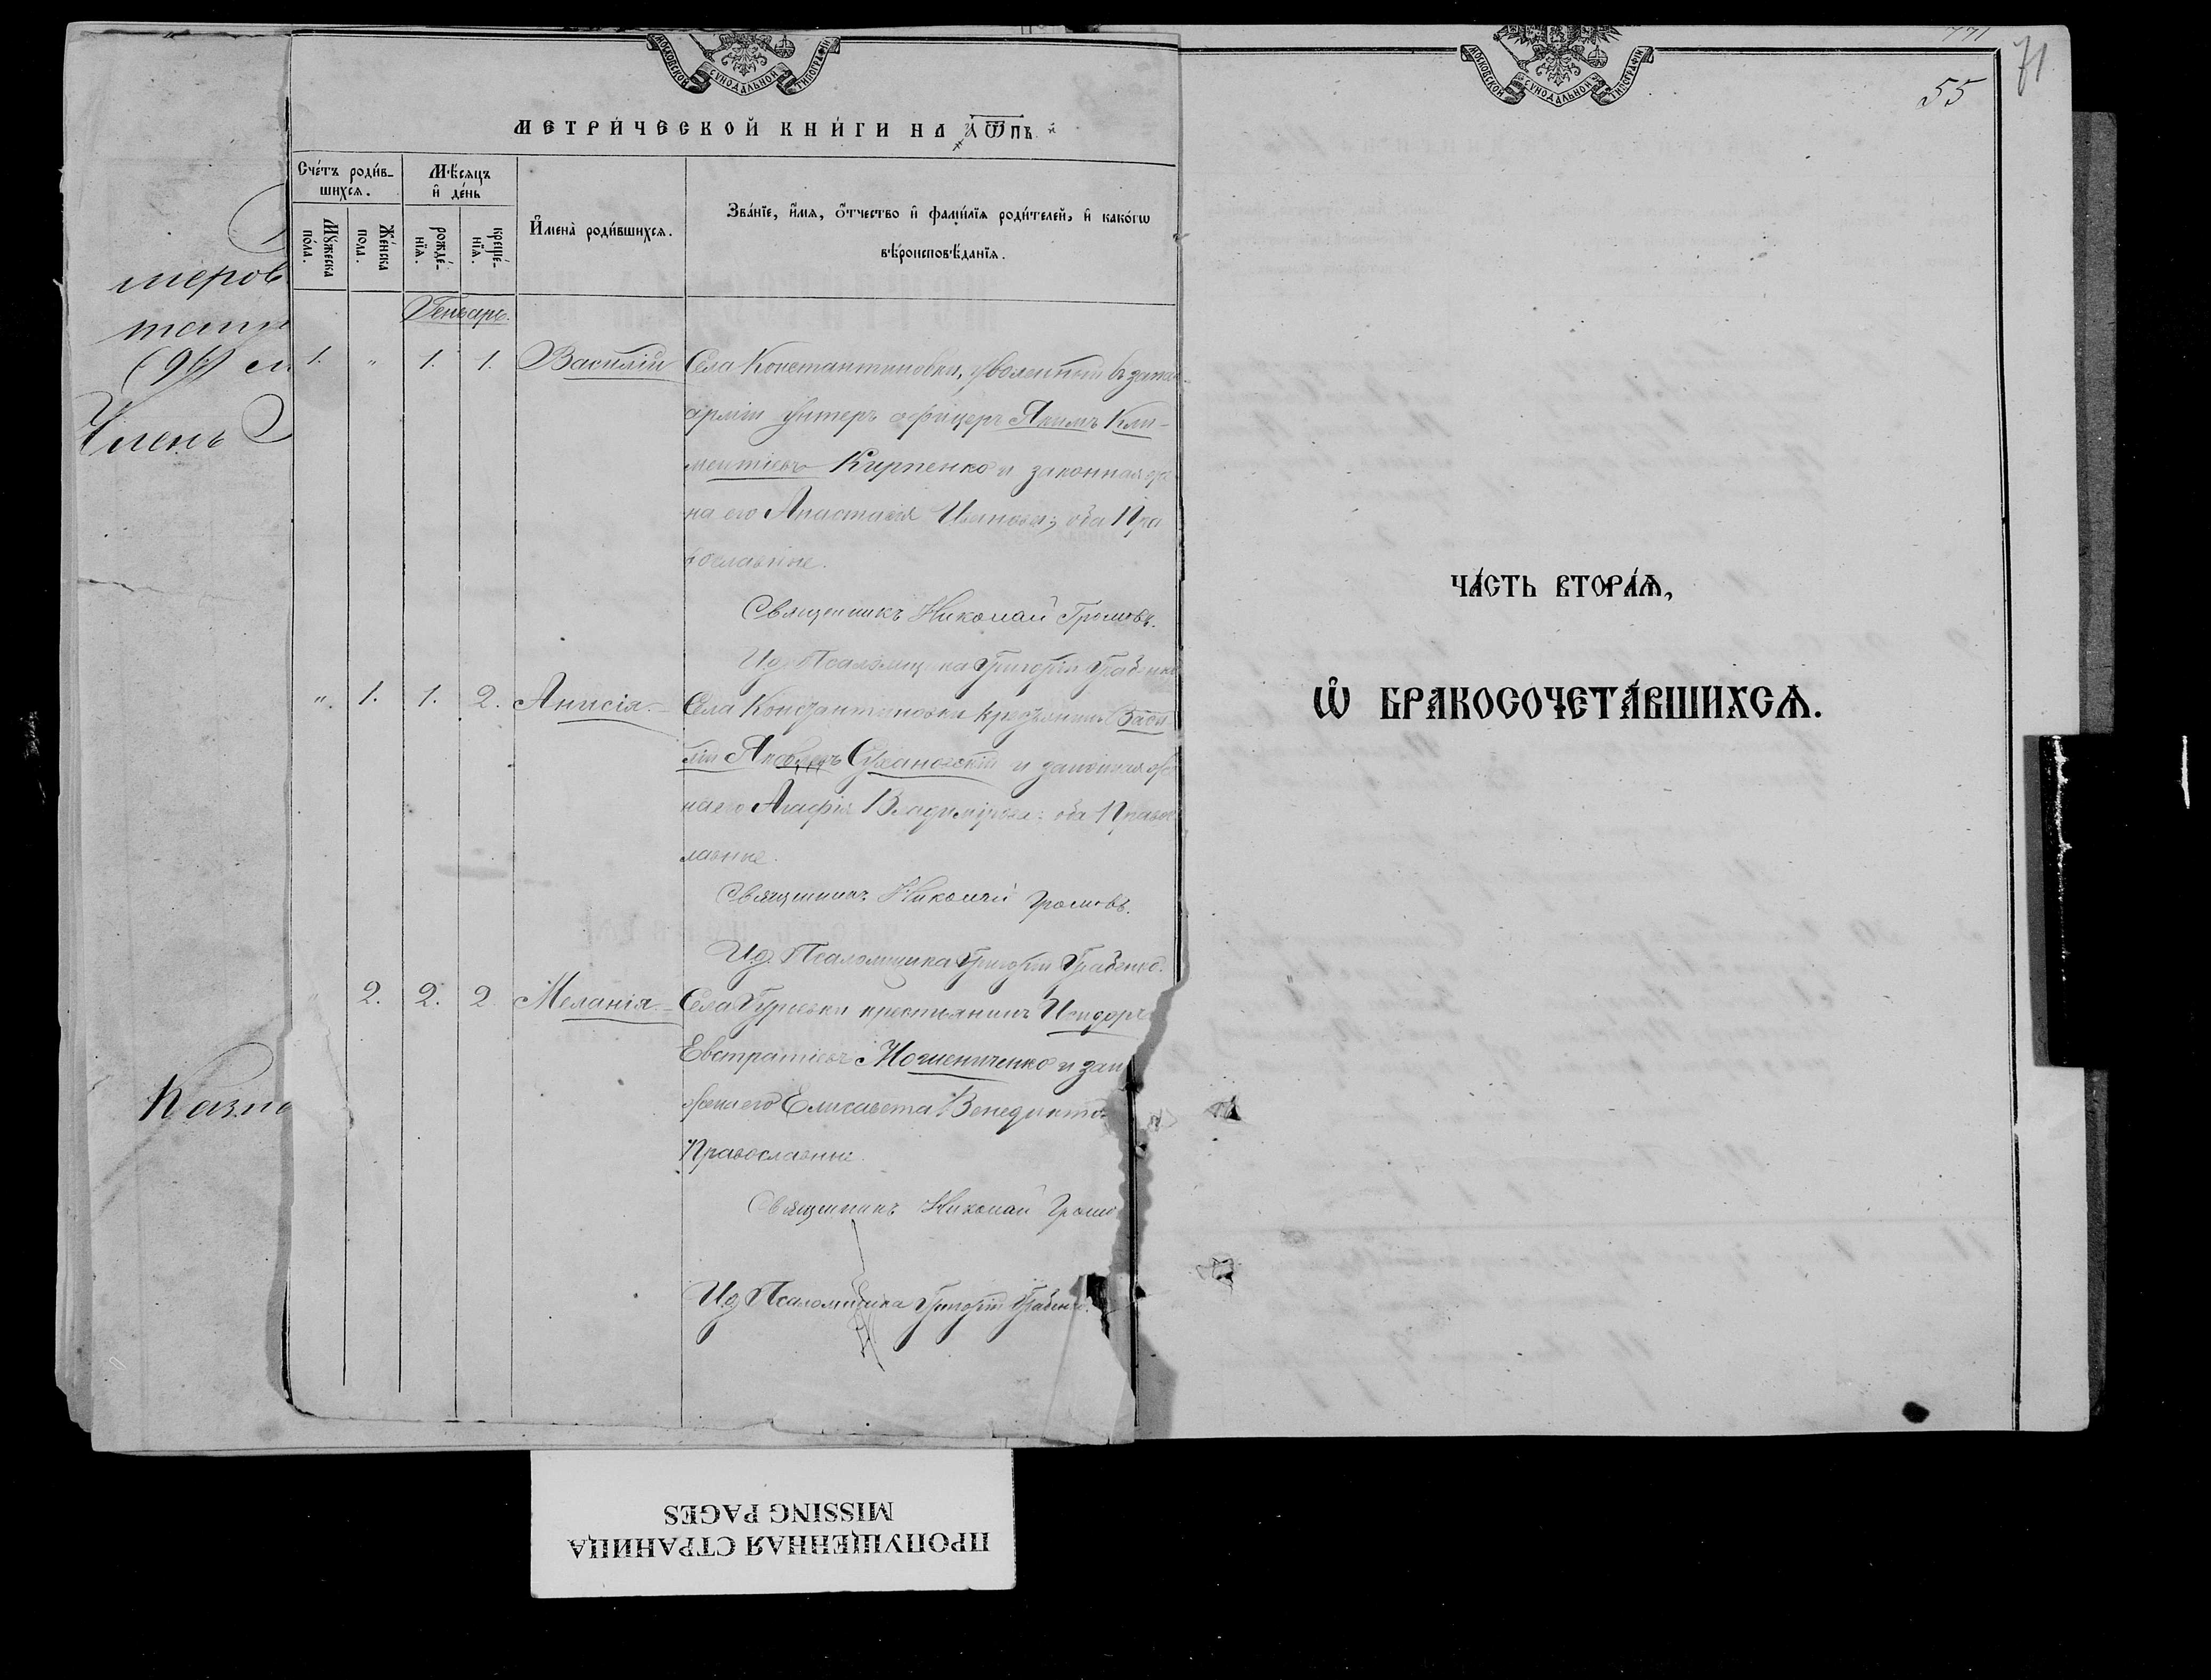 МОСКОВСКОЙ СУНОДАЛЬНОЙ ТИПОГРАФІИ
МЕТРИ́ЧЕСКОЙ КНИ́ГИ НА
Сче́тъ роди́в-
шихсѧ.
Мѣ́сѧцъ
и҆ де́нь
И҆мена̀ роди́вшихсѧ.
Зва́нїе, и҆́мѧ, ѻ҆́тчество и҆ фами́лїѧ роди́телей, и҆ како́гѡ
вѣ́роисповѣ́данїѧ.
Мꙋ́жеска
по́ла.
Же́нска
пола.
рожде́-
нїѧ.
креще́-
нїѧ.
Генварь.
1. " 1. 1. Василій Села Константиновки, уволенный въ запас
арміи унтеръ офицеръ Якимъ Кли-
ментіевъ Кирпенко и законная же
на его Анастасія Иванова; оба Пра
вославные.
Священникъ Николай Громовъ.
И.д. Псаломщика Григорій Грабенко
". 1. 1. 2. Анисія. Села Константиновки крестьянинъ Васи
лій Яковлевъ Сухановскій и законная же
на его Агафія Владимірова: оба Правос
лавные.
Священникъ Николай Громовъ.
И.д. Псаломщика Григорій Грабенко.
2. 2. 2 Меланія. Села Гурьевки крестьянинъ Исидоръ
Евстратіевъ и зак
жена его Елисавета Венедикто
Православные.
Священникъ Николай Громо
И.д. Псаломщика Григорій Грабенко.
меров
(94) ли
Членъ
Казна
71
55
МОСКОВСКОЙ СУНОДАЛЬНОЙ ТИПОГРАФІИ
ЧА́СТЬ ВТОРА́Ѧ,
Ѡ҆ БРАКОСОЧЕТА́ВШИХСѦ.
ПРОПУЩЕННАЯ СТРАНИЦА
MISSING PAGES